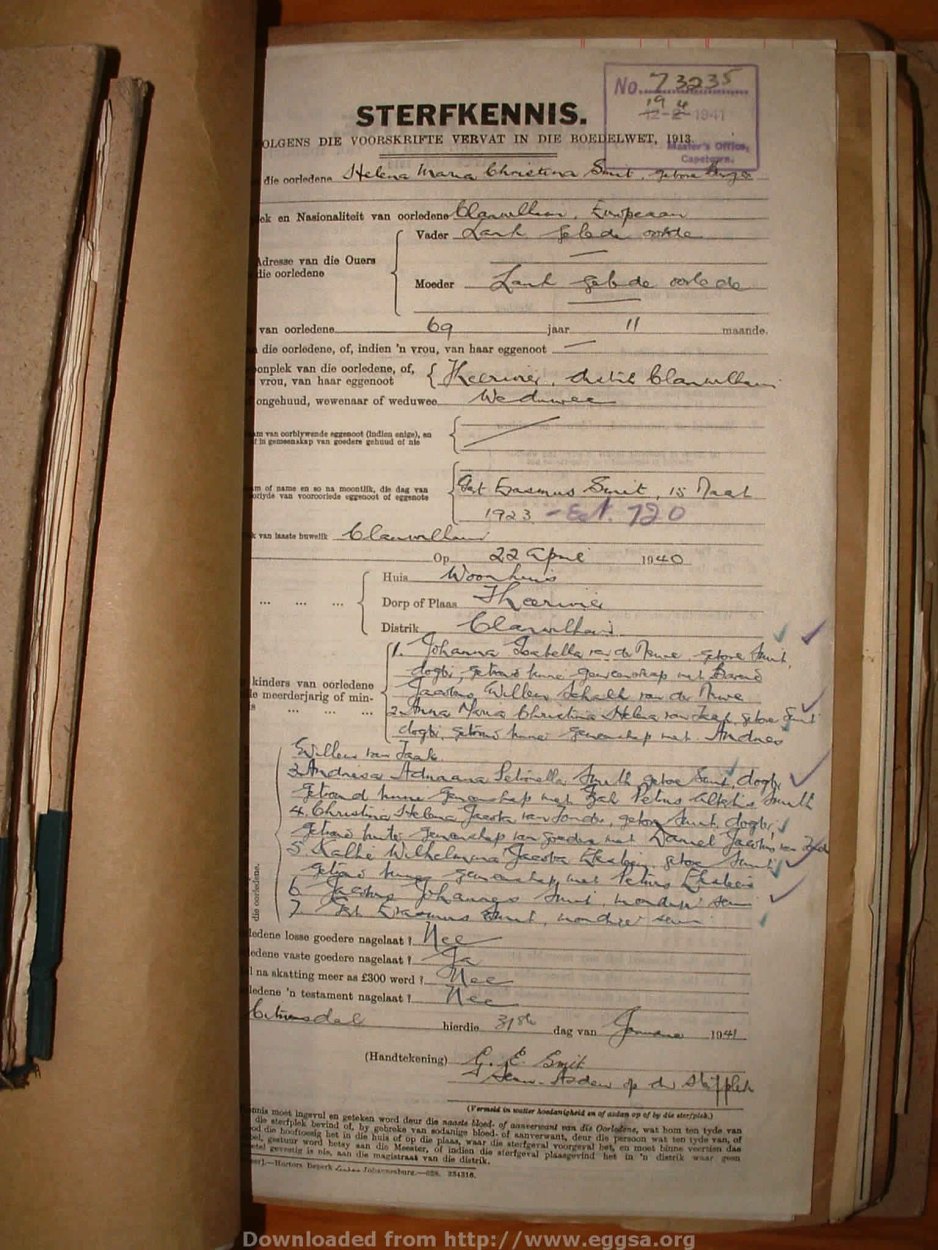 No. 73235
19 4
12-2-1941
Master's Office,
Capetown.
STERFKENNIS.
OLGENS DIE VOORSKRIFTE VERVAT IN DIE BOEDELWET, 1913.
die oorledene Helena Maria Christina Smit, gebore
ek en Nasionaliteit van oorledene Clanwilliam, European
Vader Lank gelede oorlede
Adresse van die Ouers
die oorledene
Moeder Lank gelede oorlede
van oorledene 69 jaar 11 maande.
die oorledene, of, indien 'n vrou, van haar eggenoot —
oonplek van die oorledene, of,
vrou, van haar eggenoot
distrik Clanwilliam
ongehuud, wewenaar of weduwee Weduwee
am van oorblywende eggenoot (indien enige), en
f in gemeenskap van goedere gehuud of nie
am of name en so na moontlik, die dag van
oorlyde van vooroorlede eggenoot of eggenote
Gert Erasmus Smit, 15 Maart
1923 - Est. 720
k van laaste huwelik Clanwilliam
Op 22 April 1940
Huis Woonhuis
Dorp of Plaas
Distrik Clanwilliam
kinders van oorledene
le meerderjarig of min-
1. Johanna Isabella van der Merwe, gebore Smit,
dogter, getroud binne gemeenskap met Barend
Jacobus Willem Schalk van der Merwe
2. Anna Maria Christina Helena van Zyl, gebore Smit
dogter, getroud binne gemeenskap met Andries
Willem van
3. Andresa Adriaana Petronella Smith gebore Smit, dogter,
getroud binne gemeenskap met Petrus Smith
4. Christina Helena Jacoba van gebore Smit, dogter,
getroud buite gemeenskap van goedere met Daniel Jacobus van
5. Wilhelmina Jacoba gebore Smit
getroud binne gemeenskap met Petrus
6. Jacobus Johannes Smit, mondige seun
7. Gert Erasmus Smit, mondige seun
die oorledene.
ledene losse goedere nagelaat? Nee
ledene vaste goedere nagelaat? Ja
l na skatting meer as £300 werd? Nee
ledene 'n testament nagelaat? Nee
hierdie 31ste dag van Januarie 1941
(Handtekening) G. E. Smit
Seun op die
(Vermeld in watter hoedanigheid en of aldan op of by die sterfplek.)
ennis moet ingevul en geteken word deur die naaste bloed- of aanverwant van die Oorledene, wat hom ten tyde van
die sterfplek bevind of, by gebreke van sodanige bloed- of aanverwant, deur die persoon wat ten tyde van, of
die hooftoesig het in die huis of op die plaas, waar die sterfgeval voorgeval het, en moet binne veertien dae
gestuur word hetsy aan die Meester, of indien die sterfgeval plaasgevind het in 'n distrik waar geen
gevestig is nie, aan die magistraat van die distrik.
—Hortors Beperk Johannesburg.—
Downloaded from http://www.eggsa.org